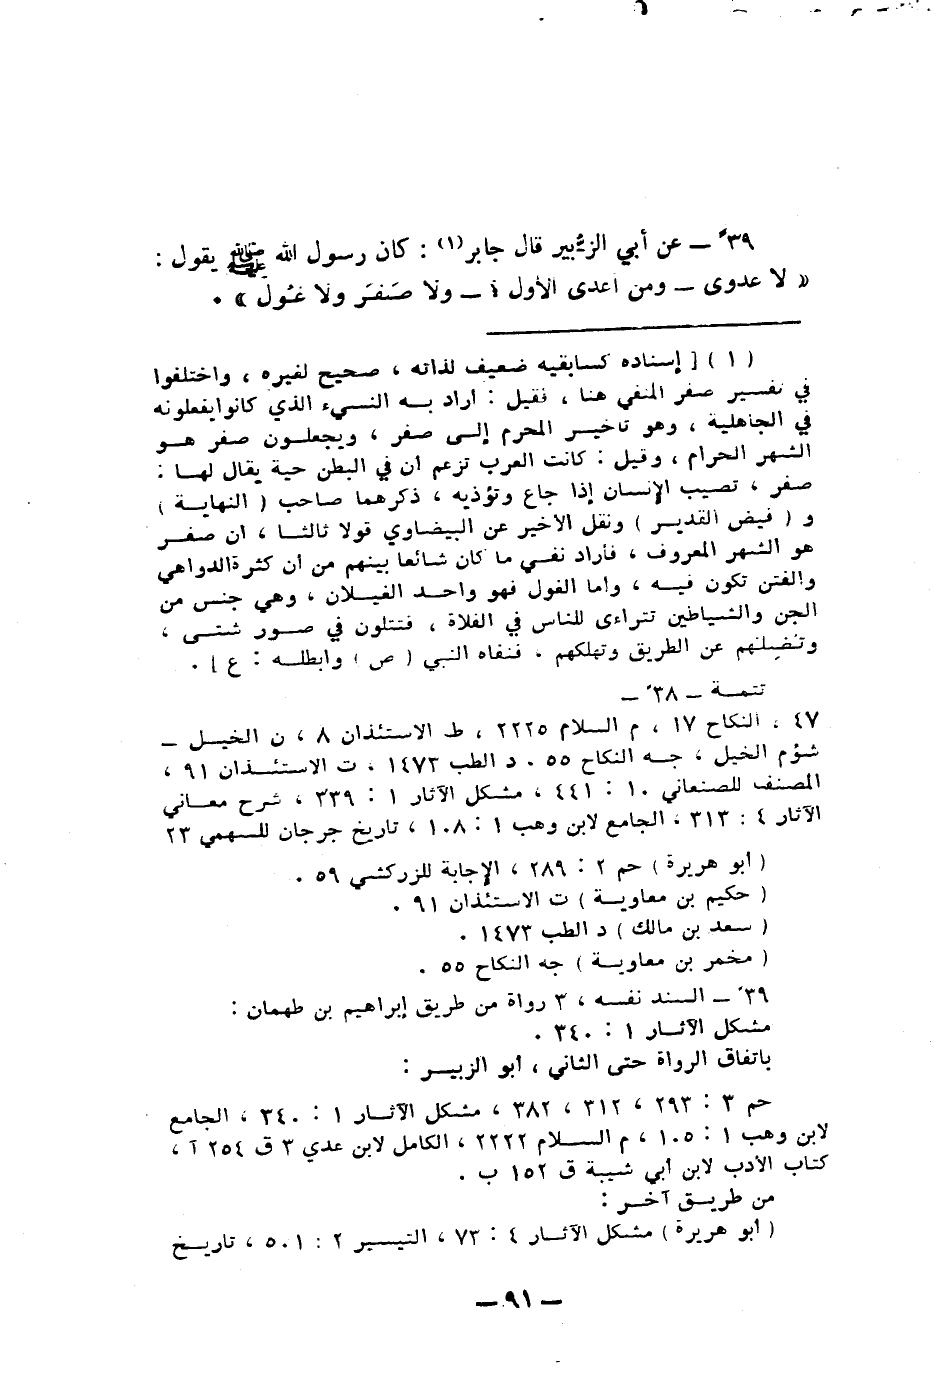 ٣٩ً ــ عن أبي الزبير قال جابر (١) : كان رسول الله ﷺ يقول :
« لا عدوى ــ ومن أعدى الأول ؟ ــ ولا صَفَرَ ولا غُول » .
( ١ ) [ إسناده كسابقيه ضعيف لذاته ، صحيح لغيره ، واختلفوا
في تفسير صفر المنفي هنا ، فقيل : أراد به النسيء الذي كانوا يفعلونه
في الجاهلية ، وهو تأخير المحرم إلى صفر ، ويجعلون صفر هو
الشهر الحرام ، وقيل : كانت العرب تزعم أن في البطن حية يقال لها :
صفر ، تصيب الإنسان إذا جاع وتؤذيه ، ذكرهما صاحب ( النهاية )
و ( فيض القدير ) ونقل الأخير عن البيضاوي قولا ثالثا ، أن صفر
هو الشهر المعروف ، فأراد نفي ما كان شائعا بينهم من أن كثرة الدواهي
والفتن تكون فيه ، وأما الغول فهو واحد الغيلان ، وهي جنس من
الجن والشياطين تتراءى للناس في الفلاة ، فتتلون في صور شتى ،
وتضلهم عن الطريق وتهلكهم . فنفاه النبي ( ص ) وأبطله : ع ] .
تتمة ــ ٣٨ً ــ
٤٧ ، النكاح ١٧ ، م السلام ٢٢٢٥ ، ط الاستئذان ٨ ، ن الخيل ــ
شؤم الخيل ، جه النكاح ٥٥ . د الطب ١٤٧٣ ، ت الاستئذان ٩١ ،
المصنف للصنعاني ١٠ : ٤٤١ ، مشكل الآثار ١ : ٣٣٩ ، شرح معاني
الآثار ٤ : ٣١٣ ، الجامع لابن وهب ١ : ١٠٨ ، تاريخ جرجان للسهمي ٢٣
( أبو هريرة ) حم ٢ : ٢٨٩ ، الإجابة للزركشي ٥٩ .
( حكيم بن معاوية ) ت الاستئذان ٩١ .
( سعد بن مالك ) د الطب ١٤٧٣ .
( مخمر بن معاوية ) جه النكاح ٥٥ .
٣٩ً ــ السند نفسه ، ٣ رواة من طريق إبراهيم بن طهمان :
مشكل الآثار ١ : ٣٤٠ .
باتفاق الرواة حتى الثاني ، أبو الزبير :
حم ٣ : ٢٩٣ ، ٣١٢ ، ٣٨٢ ، مشكل الآثار ١ : ٣٤٠ ، الجامع
لابن وهب ١ : ١٠٥ ، م السلام ٢٢٢٢ ، الكامل لابن عدي ٣ ق ٢٥٤ آ ،
كتاب الأدب لابن أبي شيبة ق ١٥٢ ب .
من طريق آخر :
( أبو هريرة ) مشكل الآثار ٤ : ٧٣ ، التيسير ٢ : ٥٠١ ، تاريخ
ــ ٩١ ــ